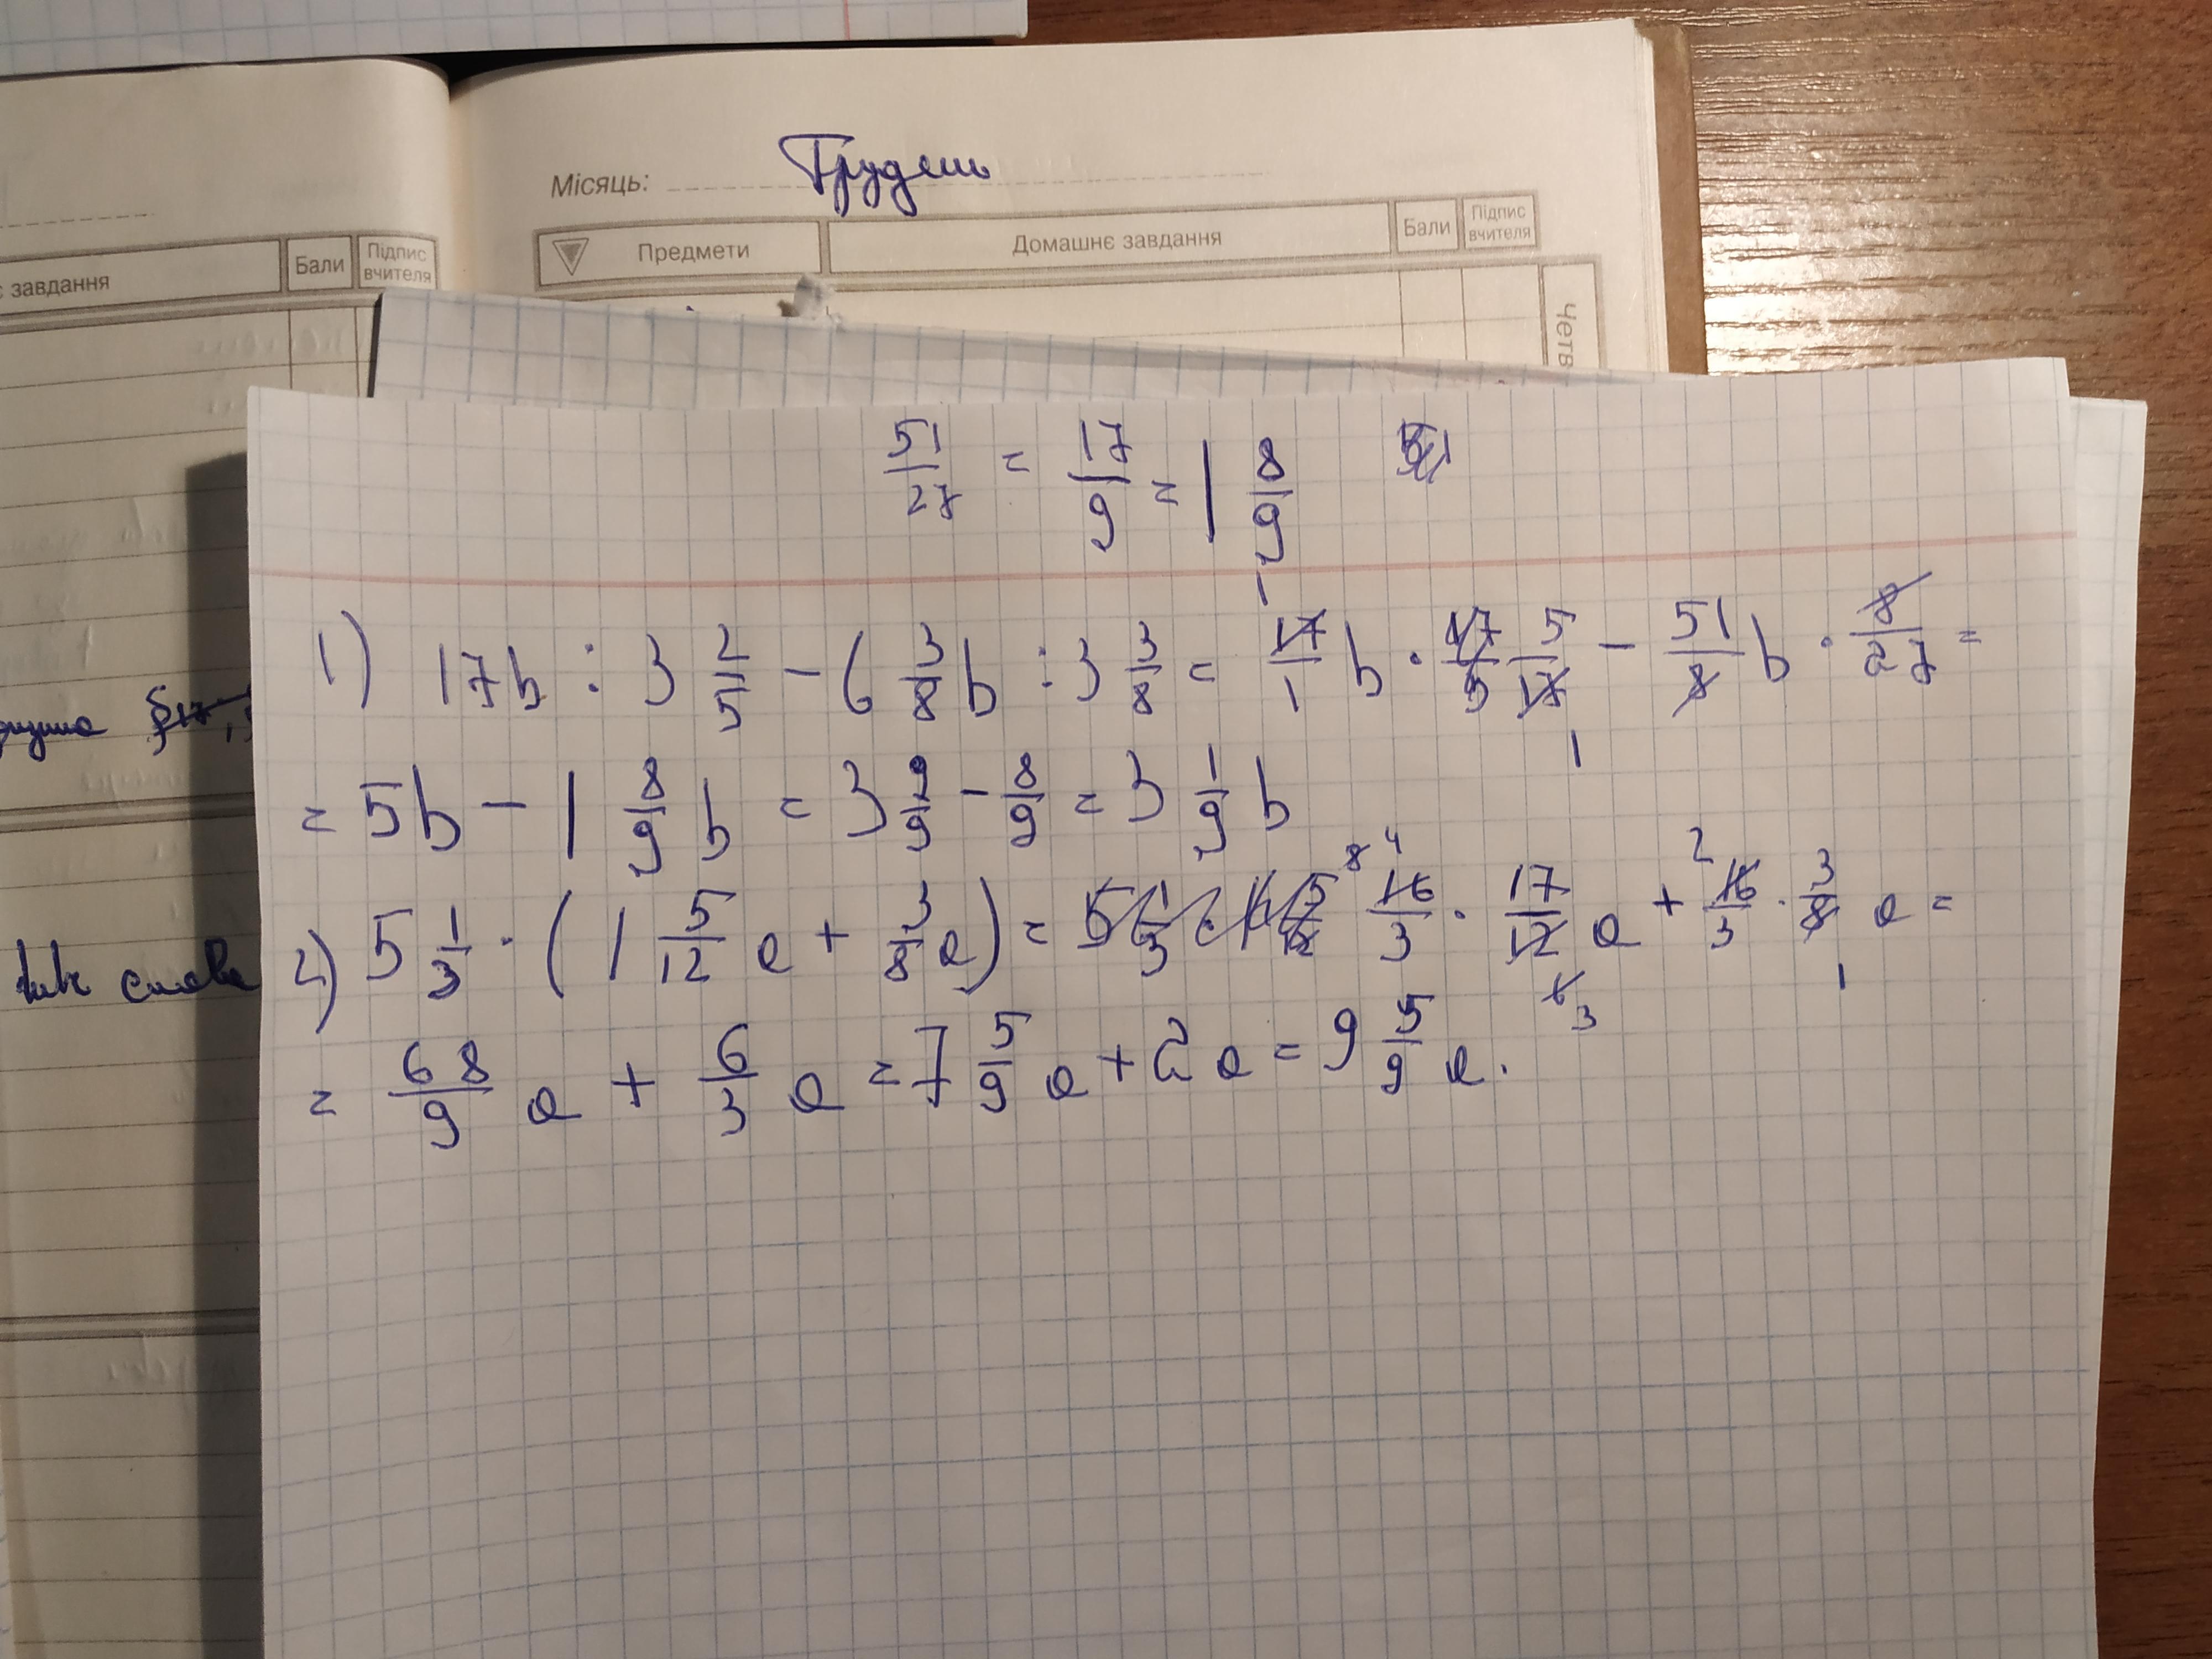 Місяць: Грудень
Предмети Домашнє завдання Бали Підпис вчителя
є завдання Бали Підпис вчителя
Четв
51/27 = 17/9 = 1 8/9
1) 17b : 3 2/5 - 6 3/8 b : 3 3/8 = 17/1 b · 17/5 5/17 - 51/8 b · 8/27 =
1
1
= 5b - 1 8/9 b = 3 9/9 - 8/9 = 3 1/9 b
8 4 2
2) 5 1/3 · (1 5/12 a + 3/8 a) = 5 1/3 · 1 5/12 16/3 · 17/12 a + 16/3 · 3/8 a =
6 3 1
= 68/9 a + 6/3 a = 7 5/9 a + 2 a = 9 5/9 a.